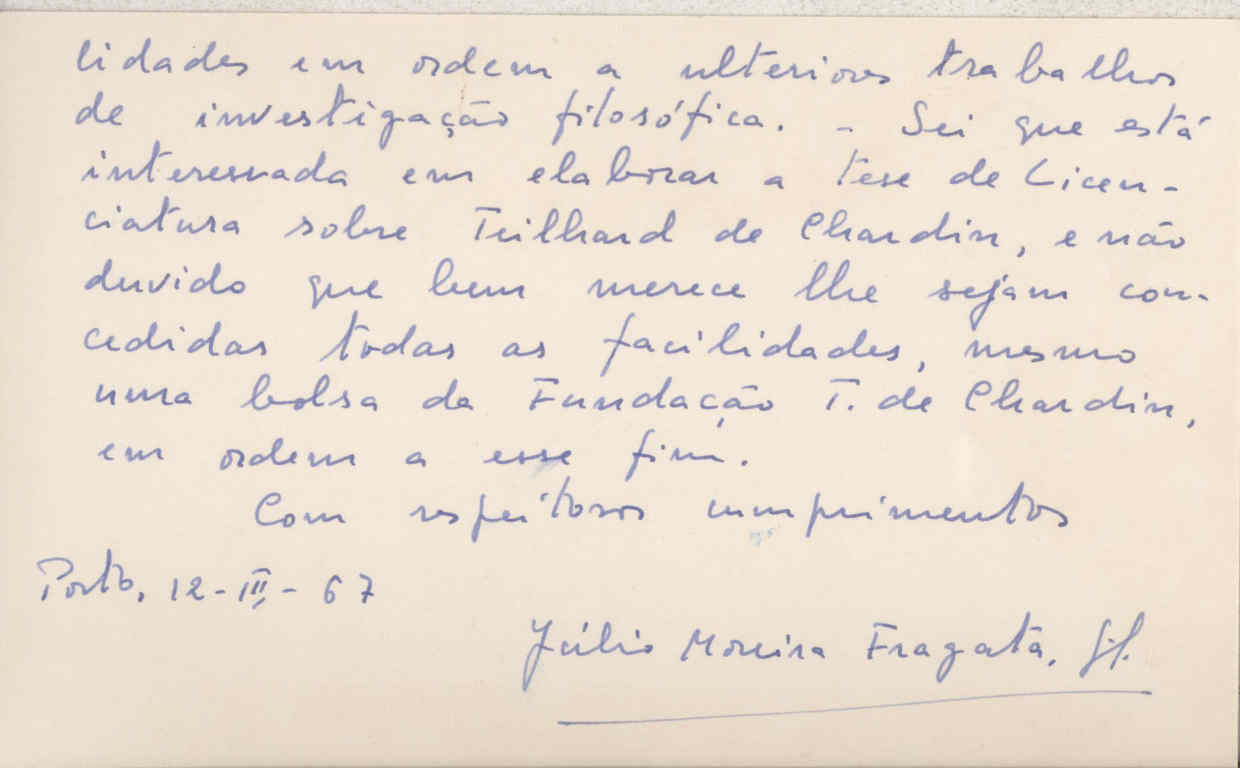 lidades em ordem a ulteriores trabalhos
de investigação filosófica. - Sei que está
interessada em elaborar a tese de Licen-
ciatura sobre Teilhard de Chardin, e não
duvido que bem merece lhe sejam con-
cedidas todas as facilidades, mesmo
uma bolsa da Fundação T. de Chardin,
em ordem a esse fim.
Com respeitosos cumprimentos
Porto, 12-III-67
Júlio Moreira Fragata, S.J.